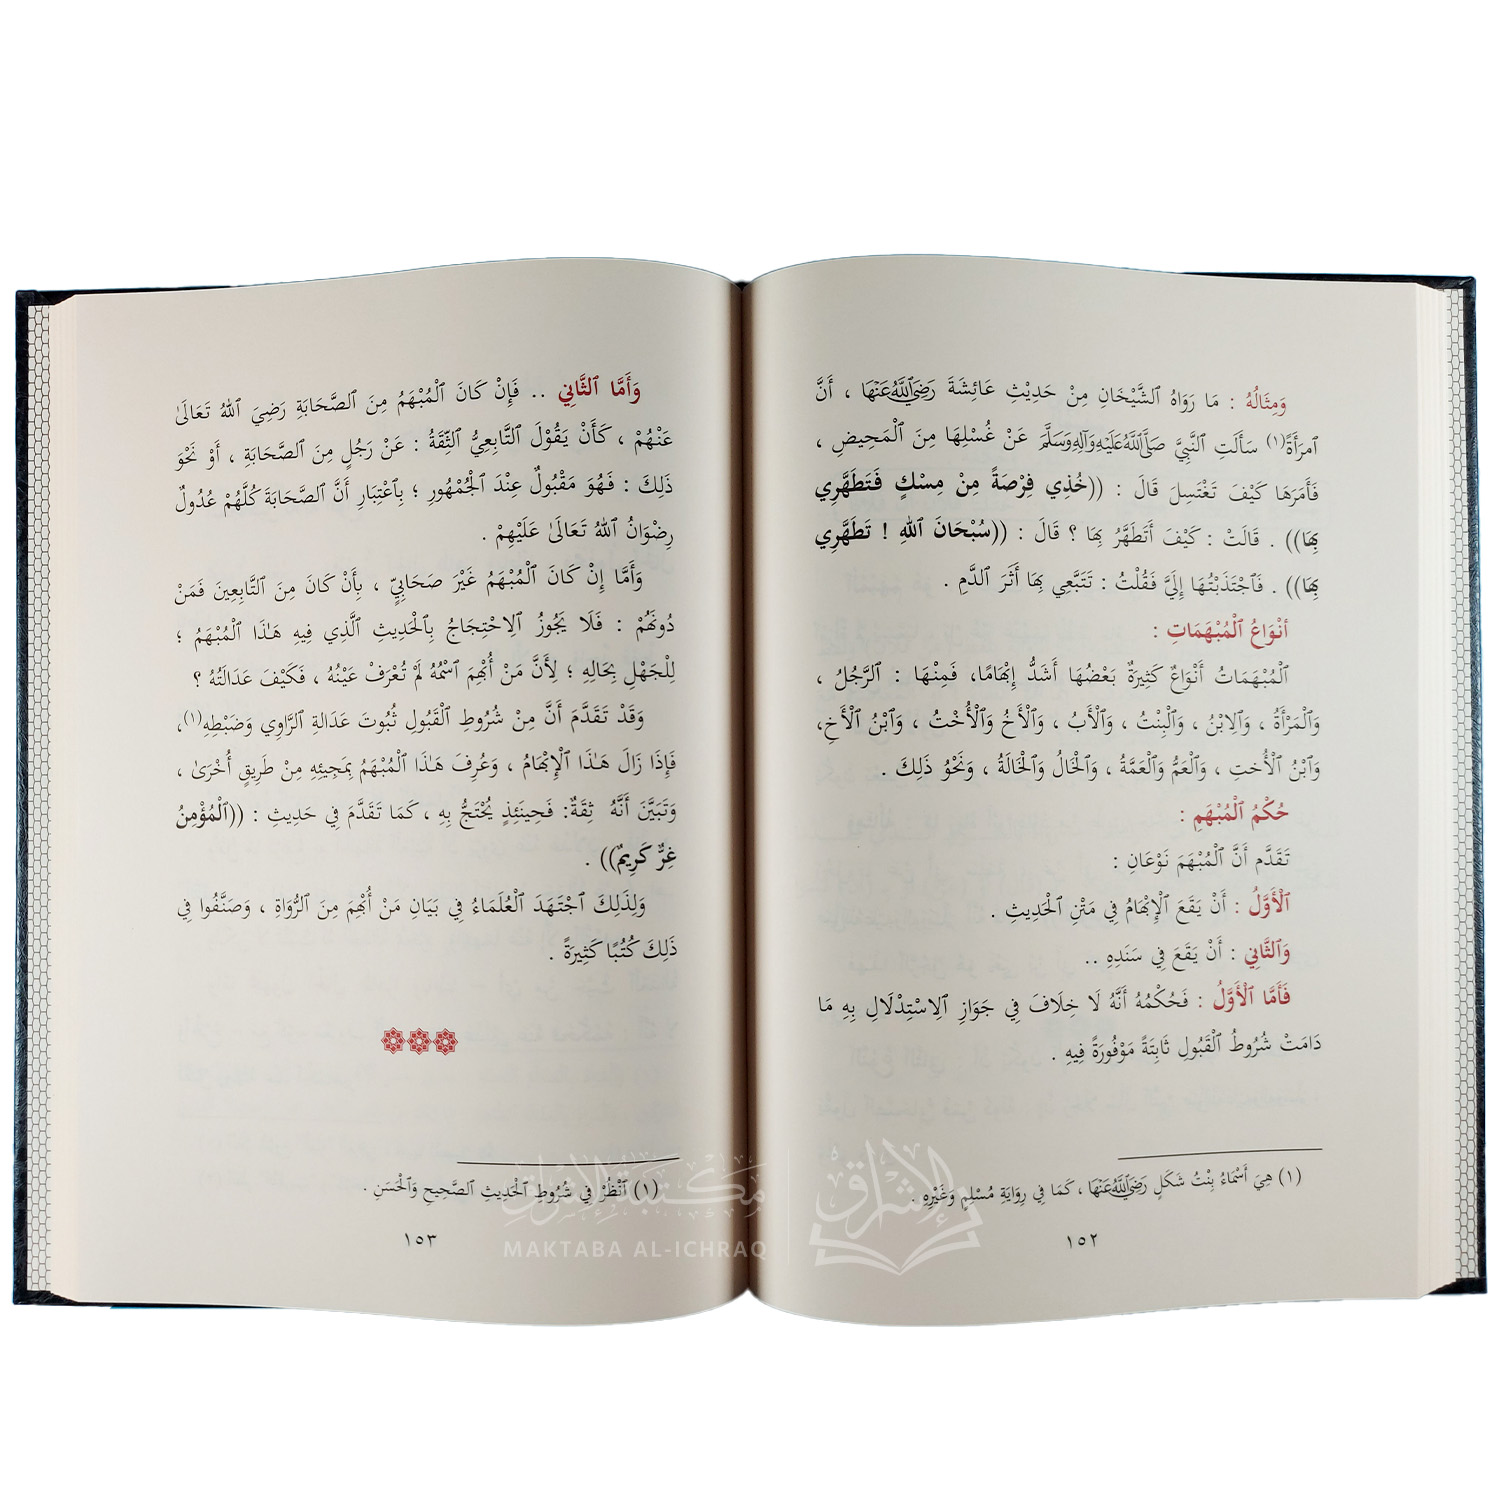 وَمِثَالُهُ : مَا رَوَاهُ ٱلشَّيْخَانِ مِنْ حَدِيْثِ عَائِشَةَ رَضِيَ ٱللَّهُ عَنْهَا ، أَنَّ
ٱمرَأَةً(١) سَأَلَتِ ٱلنَّبِيَّ صَلَّى ٱللَّهُ عَلَيْهِ وَآلِهِ وَسَلَّمَ عَنْ غُسْلِهَا مِنَ ٱلْمَحِيضِ ،
فَأَمَرَهَا كَيْفَ تَغْتَسِلَ قَالَ : ((خُذِي فِرْصَةً مِنْ مِسْكٍ فَتَطَهَّرِي
بِهَا)) . قَالَتْ : كَيْفَ أَتَطَهَّرُ بِهَا ؟ قَالَ : ((سُبْحَانَ ٱللهِ ! تَطَهَّرِي
بِهَا)) . فَٱجْتَذَبْتُهَا إِلَيَّ فَقُلْتُ : تَتَبَّعِي بِهَا أَثَرَ ٱلدَّمِ .
أنْوَاعُ ٱلْمُبْهَمَاتِ :
ٱلْمُبْهَمَاتُ أَنْوَاعٌ كَثِيرَةٌ بَعْضُهَا أَشَدُّ إِبْهَامًا، فَمِنْهَا : ٱلرَّجُلُ ،
وَٱلْمَرْأَةُ ، وَٱلِابْنُ ، وَٱلْبِنْتُ ، وَٱلْأَبُ ، وَٱلْأَخُ وَٱلْأُخْتُ ، وَٱبْنُ ٱلْأَخِ،
وَٱبْنُ ٱلْأُختِ ، وَٱلْعَمُّ وَٱلْعَمَّةُ ، وَٱلْخَالُ وَٱلْخَالَةُ ، وَنَحْوُ ذَلِكَ .
حُكْمُ ٱلْمُبْهَمِ :
تَقَدَّم أَنَّ ٱلْمُبْهَمَ نَوْعَانِ :
ٱلْأَوَّلُ : أَنْ يَقَعَ ٱلْإِبْهَامُ فِي مَتْنِ ٱلْحَدِيثِ .
وَٱلثَّانِي : أَنْ يَقَعَ فِي سَنَدِهِ ..
فَأَمَّا ٱلْأَوَّلُ : فَحُكْمُهُ أَنَّهُ لَا خِلَافَ فِي جَوَازِ ٱلِاسْتِدْلَالِ بِهِ مَا
دَامَتْ شُرُوطُ ٱلْقَبُولِ ثَابِتَةً مَوْفُورَةً فِيهِ .
(١) هِيَ أَسْمَاءُ بِنْتُ شَكَلٍ رَضِيَ ٱللَّهُ عَنْهَا ، كَمَا فِي رِوَايَةِ مُسْلِمٍ وَغَيْرِهِ .
١٥٢
وَأَمَّا ٱلثَّانِي .. فَإِنْ كَانَ ٱلْمُبْهَمُ مِنَ ٱلصَّحَابَةِ رَضِيَ ٱللهُ تَعَالَىٰ
عَنْهُمْ ، كَأَنْ يَقُوْلَ ٱلتَّابِعِيُّ ٱلثِّقَةُ : عَنْ رَجُلٍ مِنَ ٱلصَّحَابَةِ ، أَوْ نَحْوَ
ذَلِكَ : فَهُوَ مَقْبُولٌ عِنْدَ ٱلْجُمْهُورِ ؛ بِٱعْتِبَارِ أَنَّ ٱلصَّحَابَةَ كُلَّهُمْ عُدُولٌ
رِضْوَانُ ٱللهُ تَعَالَىٰ عَلَيْهِمْ .
وَأَمَّا إِنْ كَانَ ٱلْمُبْهَمُ غَيْرَ صَحَابِيٍّ ، بِأَنْ كَانَ مِنَ ٱلتَّابِعِينَ فَمَنْ
دُونَهُمْ : فَلَا يَجُوزُ ٱلِاحْتِجَاجُ بِٱلْحَدِيثِ ٱلَّذِي فِيهِ هَٰذَا ٱلْمُبْهَمُ ؛
لِلْجَهْلِ بِحَالِهِ ؛ لِأَنَّ مَنْ أُبْهِمَ ٱسْمُهُ لَمْ تُعْرَفْ عَيْنُهُ ، فَكَيْفَ عَدَالَتُهُ ؟
وَقَدْ تَقَدَّمَ أَنَّ مِنْ شُرُوطِ ٱلْقَبُولِ ثُبُوتَ عَدَالَةِ ٱلرَّاوِي وَضَبْطِهِ(١)،
فَإِذَا زَالَ هَٰذَا ٱلْإِبْهَامُ ، وَعُرِفَ هَٰذَا ٱلْمُبْهَمُ بِمَجِيئِهِ مِنْ طَرِيقٍ أُخْرَىٰ ،
وَتَبَيَّنَ أَنَّهُ ثِقَةٌ: فَحِينَئِذٍ يُحْتَجُّ بِهِ ، كَمَا تَقَدَّمَ فِي حَدِيثِ : ((ٱلْمُؤْمِنُ
غِرٌّ كَرِيمٌ)) .
وَلِذَلِكَ ٱجْتَهَدَ ٱلْعُلَمَاءُ فِي بَيَانِ مَنْ أُبْهِمَ مِنَ ٱلرُّوَاةِ ، وَصَنَّفُوا فِي
ذَلِكَ كُتُبًا كَثِيرَةً .
(١) ٱنْظُرْ فِي شُرُوطِ ٱلْحَدِيْثِ ٱلصَّحِيحِ وَٱلْحَسَنِ .
١٥٣
مكتبة الإشراق
MAKTABA AL-ICHRAQ
الإشراق